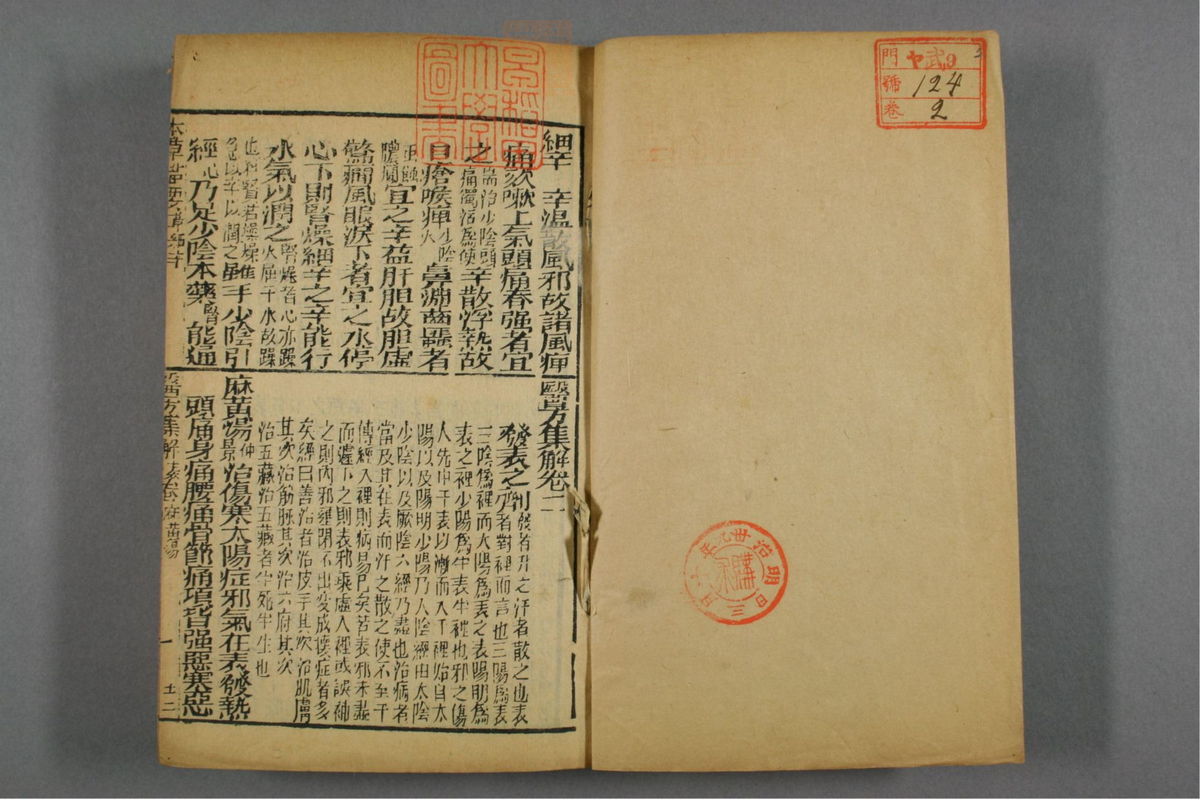 門 ヤ武9
號 124
卷 2
明治
三日
購
細辛 辛溫散風邪故諸風痺
痛欬嗽上氣頭痛脊强者宜
之
專治少陰頭
痛獨活爲使
辛散浮熱故
口瘡喉痺
少陰
火
鼻淵齒䘌者
膿
宜之辛益肝胆故胆虛
驚癇風眼淚下者宜之水停
心下則腎燥細辛之辛能行
水氣以潤之
雖手少陰引
經
乃足少陰本藥
能通
醫方集解卷二
發表之劑
發者升之汗者散之也表
者對裡而言也三陽爲表
三陰爲裡而太陽爲表之表陽明爲
表之裡少陽爲半表半裡也邪之傷
人先中于表以漸而入于裡始自太
陽以及陽明少陽乃入陰經由太陰
少陰以及厥陰六經乃盡也治病者
當及其在表而汗之散之使不至于
傳經入裡則病易已矣若表邪未盡
而遽下之則表邪乘虛入裡或誤補
之則內邪壅閉不出變成壞症者多
矣經曰善治者治皮毛其次治肌膚
其次治筋脉其次治六府其次
治五藏治五藏者半死半生也
麻黃湯
仲
景
治傷寒太陽症邪氣在表發熱
頭痛身痛腰痛骨節痛項背强惡寒惡